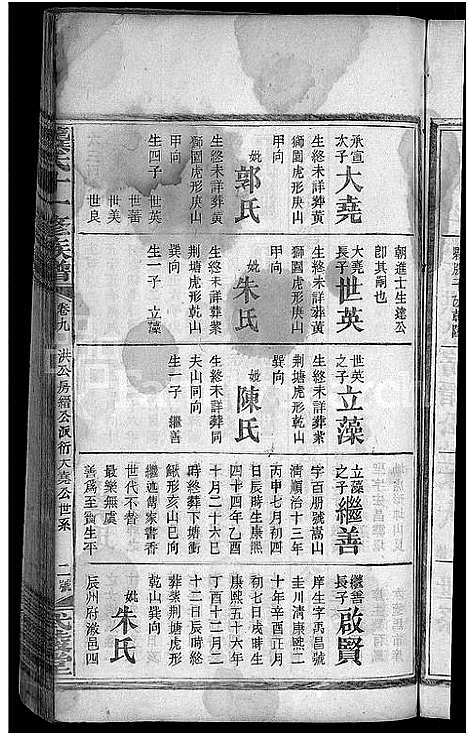 承宣次子大堯
生終未詳葬黃
獅園虎形庚山
甲向
妣郭氏
生終未詳葬黃
獅園虎形庚山
甲向
生四子 世英
世蕃
世美
世良
朝進士生達公
卽其嗣也
大堯長子世英
生終未詳葬黃
獅園虎形庚山
甲向
妣朱氏
生終未詳葬紫
荆塘虎形乾山
巽向
生一子 立藻
世英之子立藻
生終未詳葬紫
荆塘虎形乾山
巽向
妣陳氏
生終未詳葬同
夫山同向
生一子 繼善
立藻之子繼善
字百朋號嵩山
順治清初十三年
丙申七月初四
日辰時生康熙
四十四年乙酉
十月二十六巳
時終葬下塘衝
鰍形亥山巳向
繼迹傳家書香
世代不替
最樂無虞
善爲至寶生平
繼善長子啟賢
庠生字禹昌號
圭川清康熙二
十年辛酉正月
初七日戌時生
康熙五十六年
丁酉十二月二
十二日辰時終
葬紫荆塘虎形
乾山巽向
妣朱氏
辰州府漵邑四
氏十一修族譜
卷九
洪公房縉公派衍大堯公世系
二號